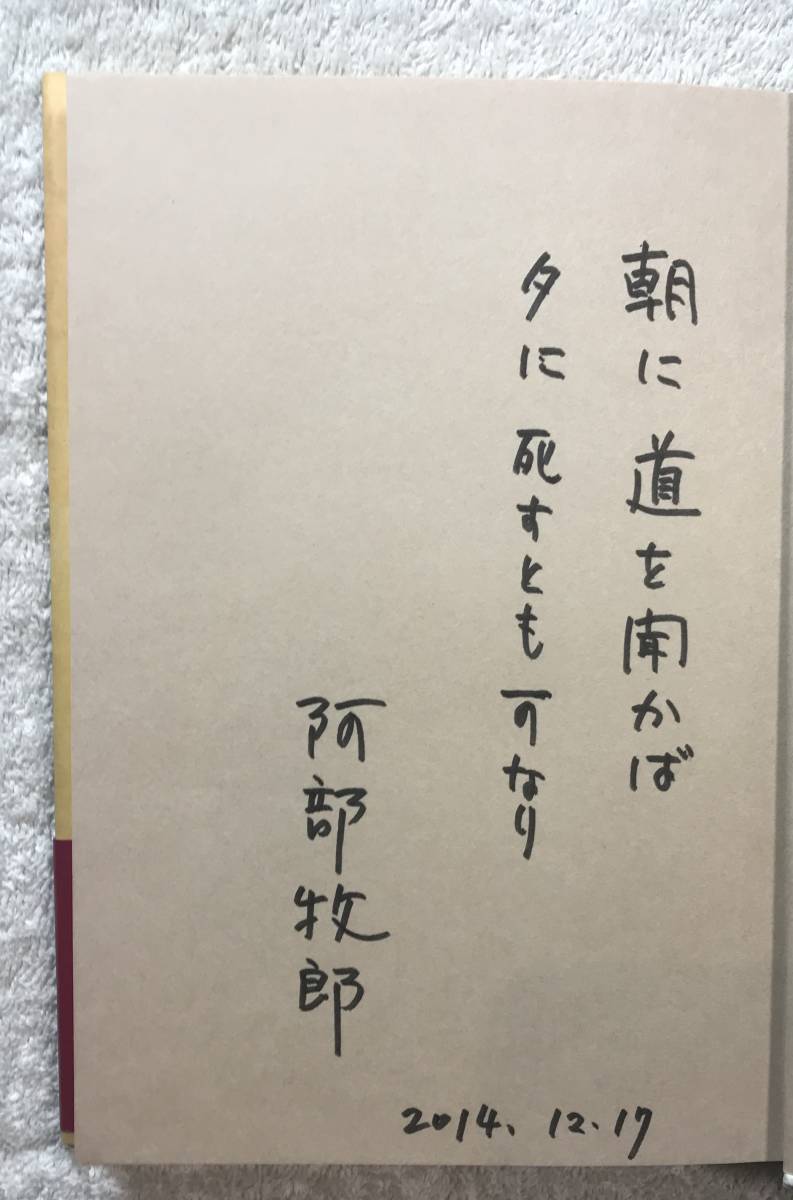 朝に道を聞かば
夕に死すとも可なり
阿部牧郎
2014.12.17